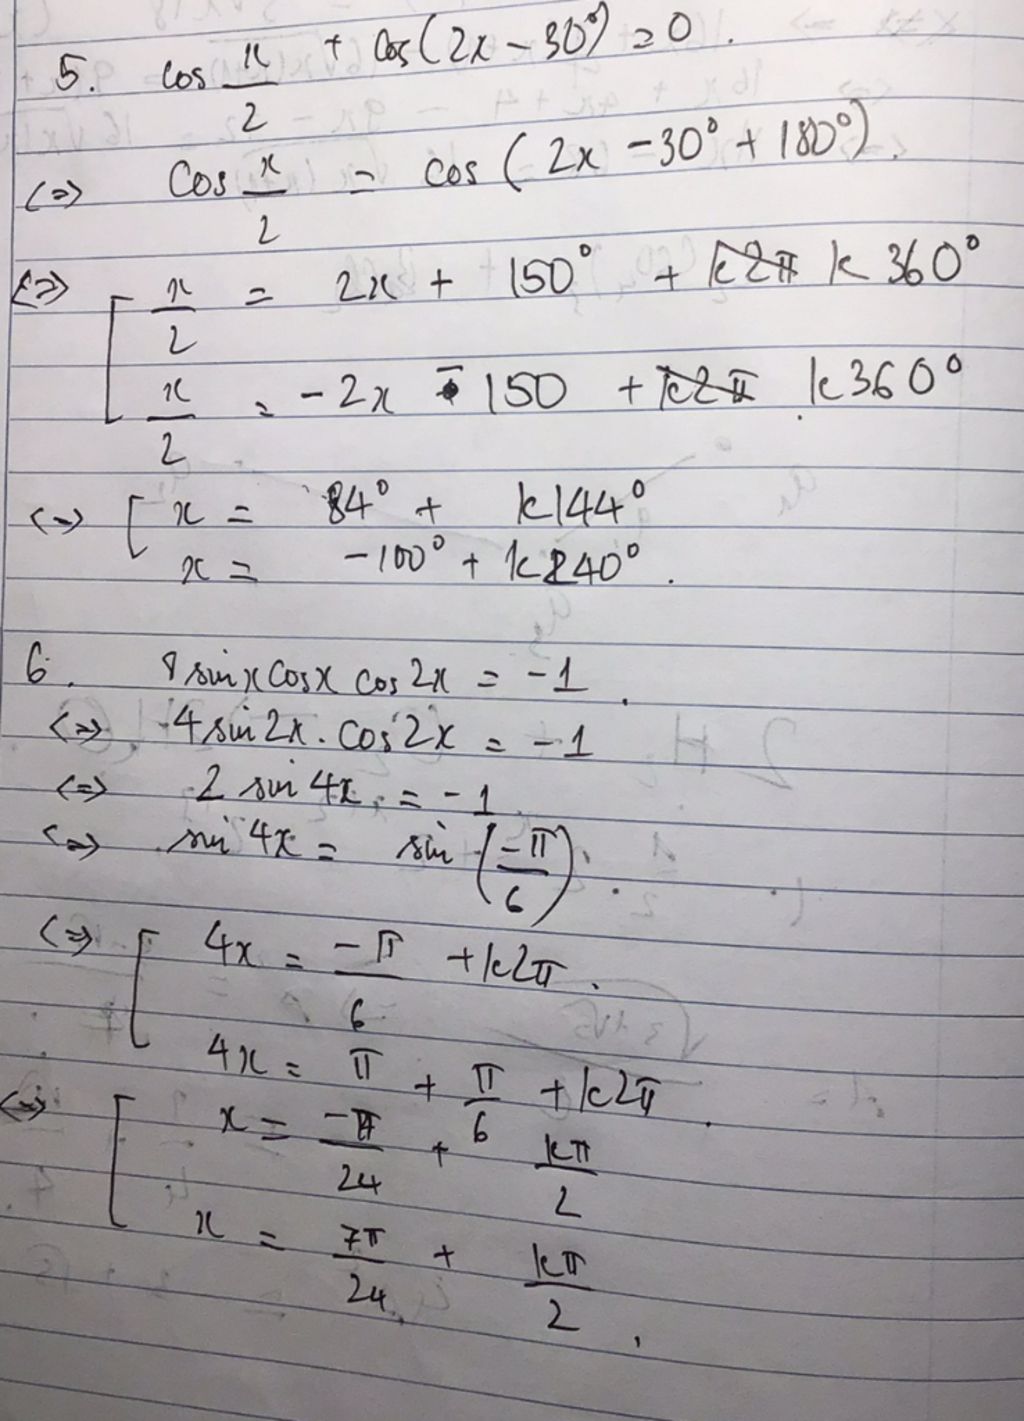 5. cos x/2 + cos(2x − 30°) = 0.
<=> cos x/2 = cos (2x − 30° + 180°).
<=> [ x/2 = 2x + 150° + k2π k 360°
x/2 = −2x − 150 + k2π k360°
<=> [ x = 84° + k144°
x = −100° + k240°.
6. 8 sin x cos x cos 2x = −1.
<=> 4 sin 2x . cos 2x = −1
<=> 2 sin 4x = −1
<=> sin 4x = sin (−π/6).
<=> [ 4x = −π/6 + k2π.
4x = π + π/6 + k2π.
<=> [ x = −π/24 + kπ/2
x = 7π/24 + kπ/2.